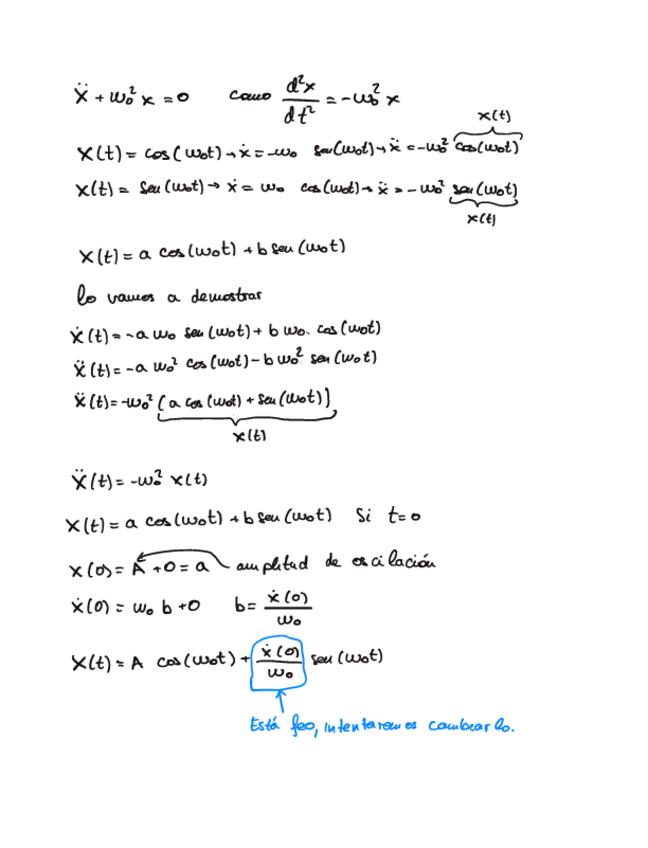 ẍ + ω₀² x = 0 como d²x/dt² = -ω₀² x
x(t)
x(t) = cos(ω₀t) → ẋ = -ω₀ sen(ω₀t) → ẍ = -ω₀² cos(ω₀t)
x(t) = sen(ω₀t) → ẋ = ω₀ cos(ω₀t) → ẍ = -ω₀² sen(ω₀t)
x(t)
x(t) = a cos(ω₀t) + b sen(ω₀t)
lo vamos a demostrar
ẋ(t) = -a ω₀ sen(ω₀t) + b ω₀ · cos(ω₀t)
ẍ(t) = -a ω₀² cos(ω₀t) - b ω₀² sen(ω₀t)
ẍ(t) = -ω₀² (a cos(ω₀t) + sen(ω₀t))
x(t)
ẍ(t) = -ω₀² x(t)
x(t) = a cos(ω₀t) + b sen(ω₀t) Si t=0
x(0) = A + 0 = a amplitud de oscilación
ẋ(0) = ω₀ b + 0 b = ẋ(0)/ω₀
x(t) = A cos(ω₀t) + ẋ(0)/ω₀ sen(ω₀t)
Está feo, intentaremos cambiarlo.